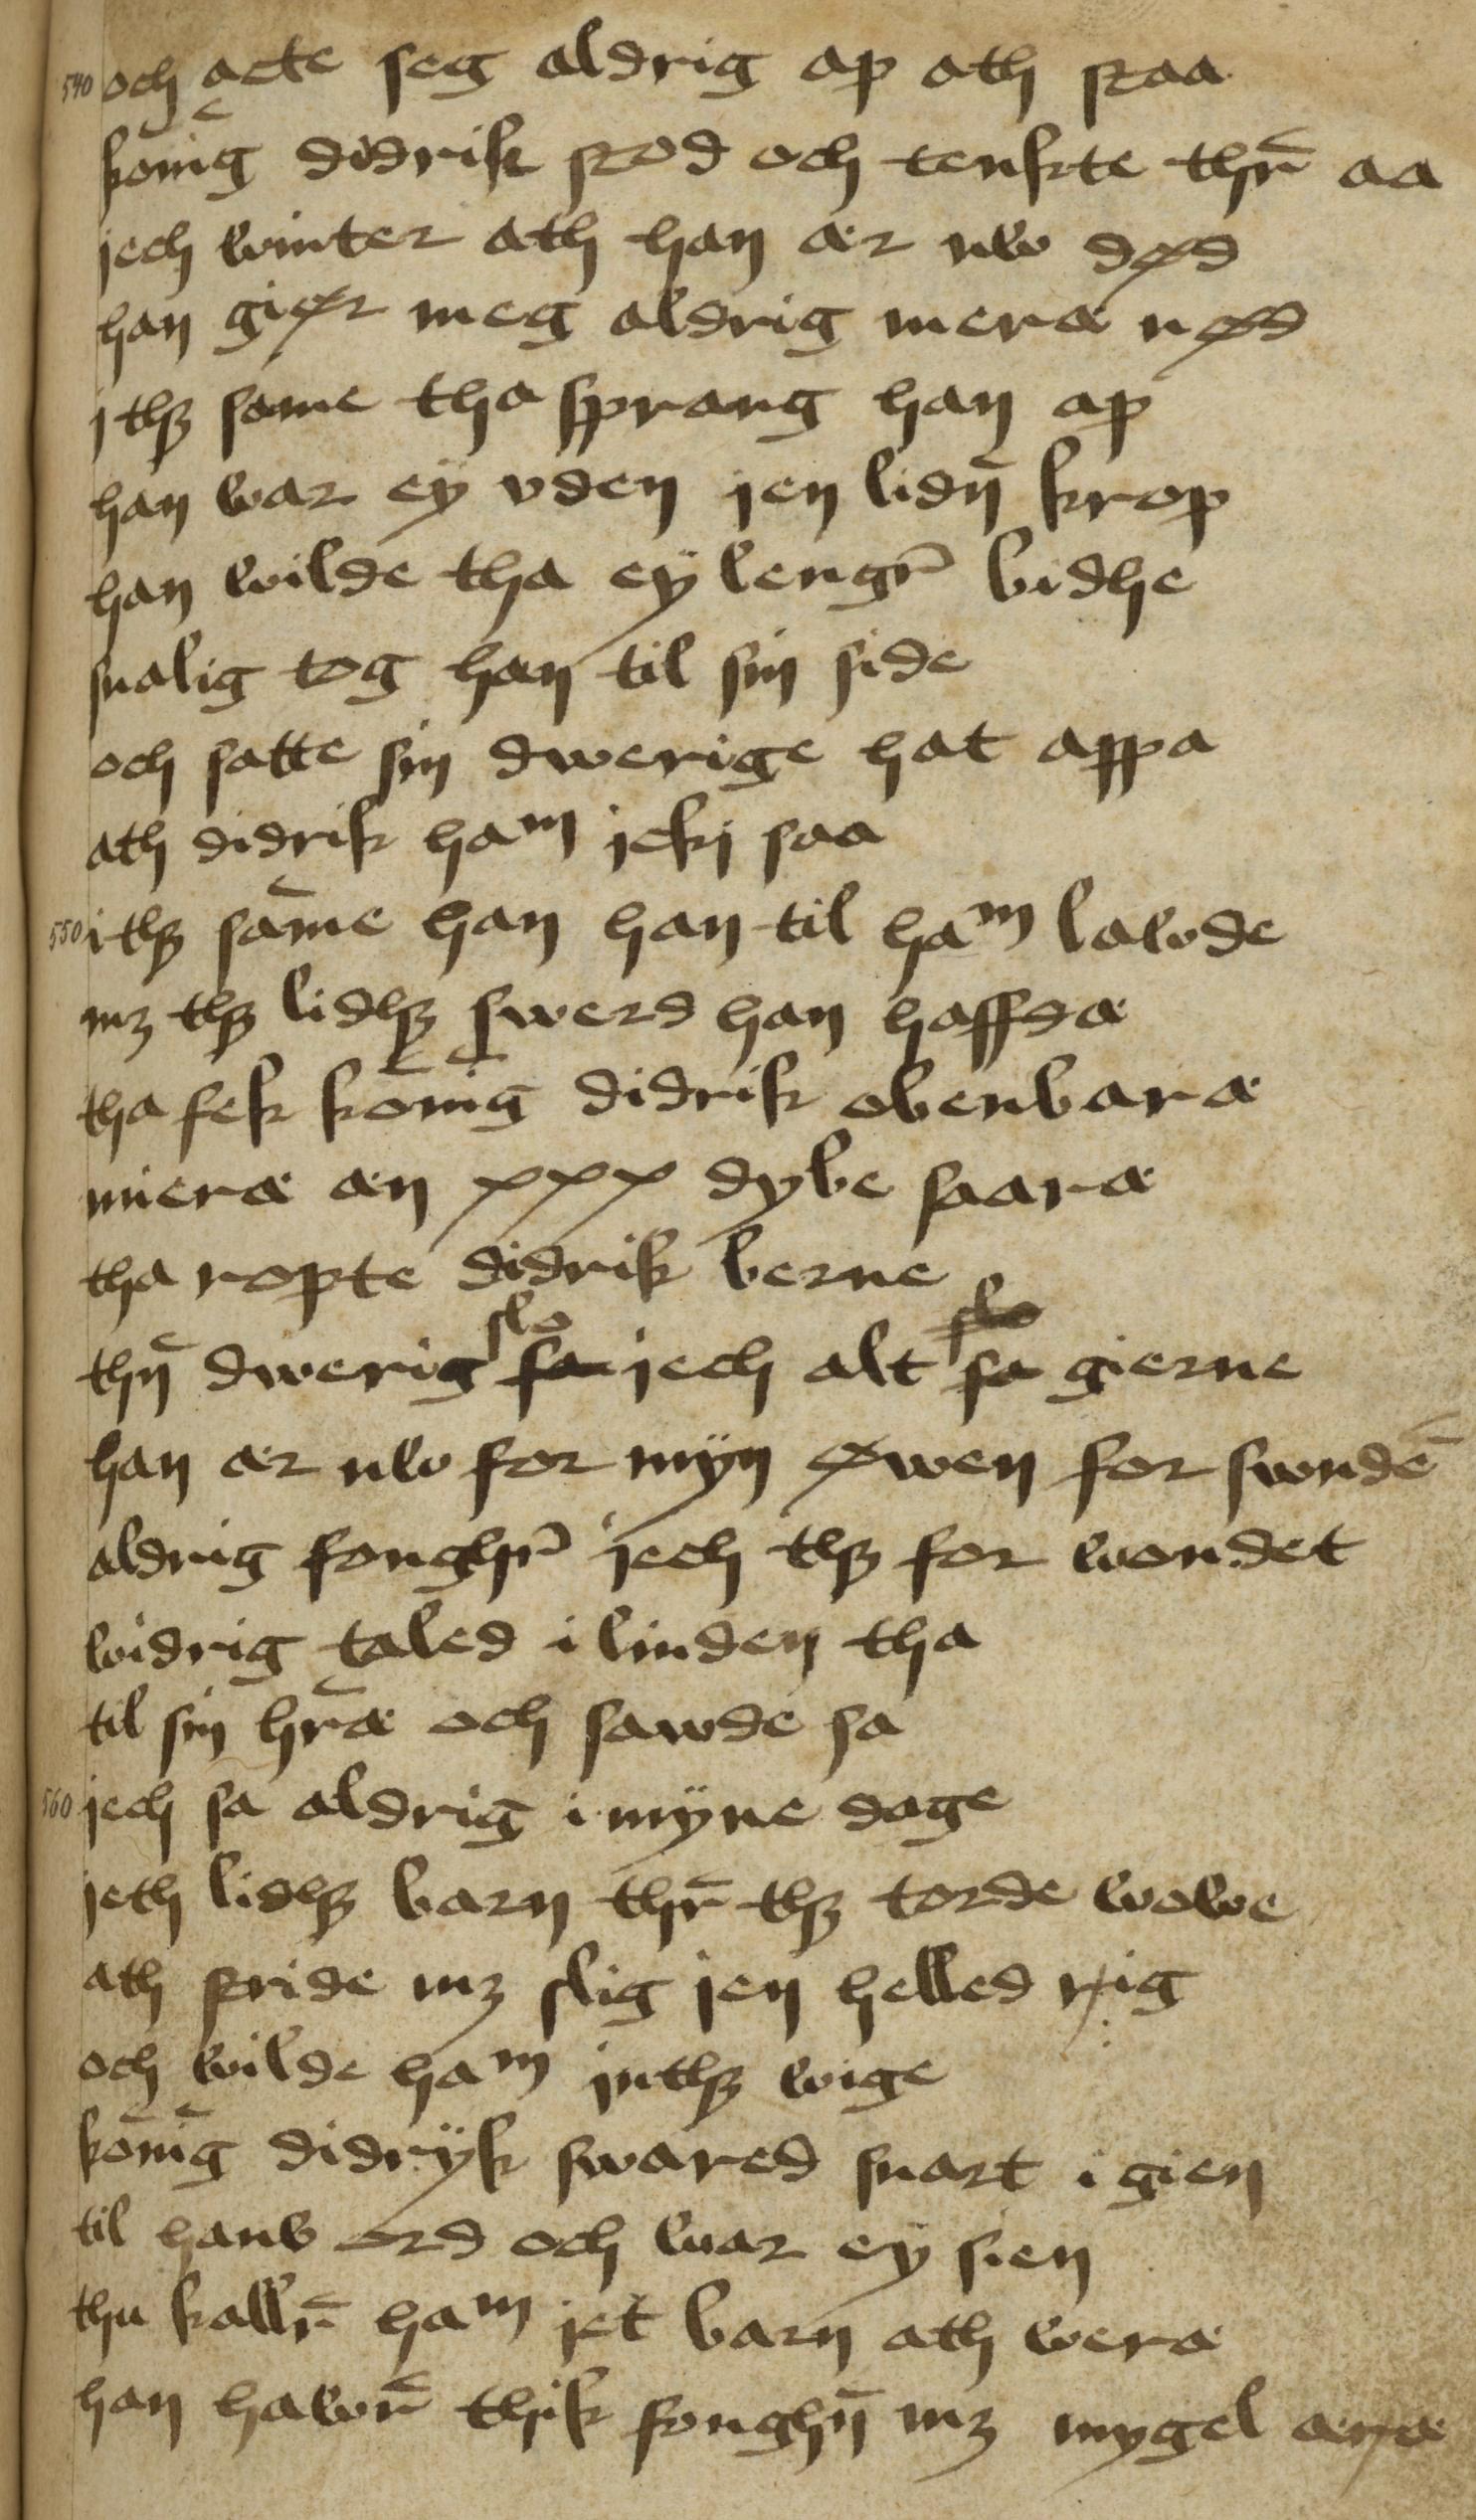 540 och acte seg aldrig ap ath staa
koni̅g didrik stod och tenkte thr̅ aa
jech winter ath han ær nw død
han giør meg aldrig meræ nød
j thꝫ same tha sprang han ap
han war ey vden jen lidn̅ krop
han wilde tha ey lengr̅ bidhe
snalig tog han til sin side
och satte sin dwerige hat appa
ath didrik ham jcki saa
550 i thꝫ sa̅me han han til ham lawde
mꝫ thꝫ lidhꝫ swerd han haffdæ
tha fek ko̅nig didrik obenbaræ
mieræ æn xxx dybe saaræ
tha ropte didrik berne
thn̅ dwerig slo sa jech alt slo sa gierne
han ær nw for myn øwen for swnde̅
aldrig fonghr̅ jech thꝫ for wondet
widrig taled i linden tha
til sin hr̅æ och sawde sa
560 jech sa aldrig i myne dage
jeth lidhꝫ barn thr̅ thꝫ torde wowe
ath stride mꝫ slig jen helled rig
och wilde ham jnthꝫ wige
ko̅nig didryk swared snart i gien
til hans ord och war ey sien
thu kallr̅ ham jet barn ath weræ
han hawr̅ thik fonghn̅ mꝫ mygel æræ